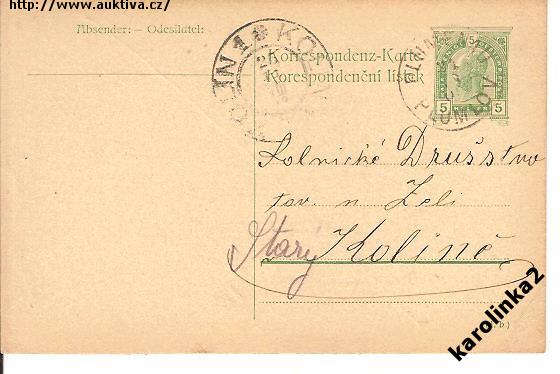 http://www.auktiva.cz/
Absender: – Odesílatel:
KOLÍN 1 * KOLIN
Korrespondenz-Karte
Korespondenční lístek
5
5 5
PLUMLOV
Rolnické Družstvo
tov. n Zeli
Starý Kolíně
karolinka2